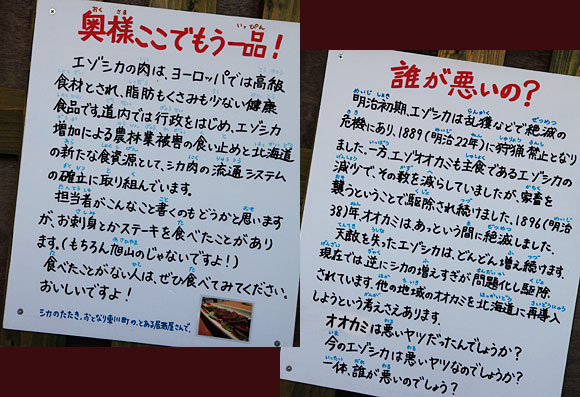 奥様ここでもう一品！
エゾシカの肉は、ヨーロッパでは高級
食材とされ、脂肪もくさみも少ない健康
食品です。道内では行政をはじめ、エゾシカ
増加による農林業被害の食い止めと北海道
の新たな食資源として、シカ肉の流通システム
の確立に取り組んでいます。
担当者がこんなこと書くのもどうかと思います
が、お刺身とかステーキを食べたことがあり
ます。(もちろん旭山のじゃないですよ！)
食べたことがない人は、ぜひ食べてみてください。
おいしいですよ！
シカのたたき。おとなり東川町の、とある居酒屋さんで。
誰が悪いの？
明治初期、エゾシカは乱獲などで絶滅の
危機にあり、1889(明治22年)に狩猟禁止となり
ました。一方、エゾオオカミも主食であるエゾシカの
減少で、その数を減らしていましたが、家畜を
襲うということで駆除され続けました。1896(明治
38)年、オオカミは、あっという間に絶滅しました。
天敵を失ったエゾシカは、どんどん増え続けます。
現在では、逆にシカの増えすぎが問題化し駆除
されています。他の地域のオオカミを北海道に再導入
しようという考えさえあります。
オオカミは悪いヤツだったんでしょうか？
今のエゾシカは悪いヤツなのでしょうか？
一体、誰が悪いのでしょう？